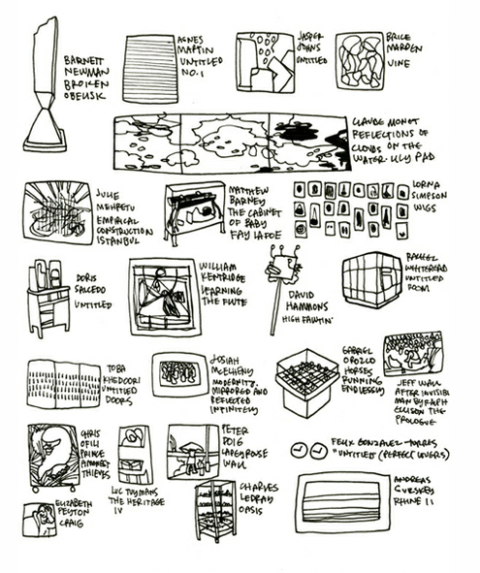 BARNETT
NEWMAN
BROKEN
OBELISK
AGNES
MARTIN
UNTITLED
NO. 1
JASPER
JOHNS
UNTITLED
BRICE
MARDEN
VINE
CLAUDE MONET
REFLECTIONS OF
CLOUDS ON THE
WATER-LILY PAD
JULIE
MEHRETU
EMPIRICAL
CONSTRUCTION
ISTANBUL
MATTHEW
BARNEY
THE CABINET
OF BABY
FAY LA FOE
LORNA
SIMPSON
WIGS
DORIS
SALCEDO
UNTITLED
WILLIAM
KENTRIDGE
LEARNING
THE FLUTE
DAVID
HAMMONS
HIGH FALUTIN'
RACHEL
WHITEREAD
UNTITLED
ROOM
TOBA
KHEDOORI
UNTITLED
DOORS
JOSIAH
McELHENY
MODERNITY,
MIRRORED AND
REFLECTED
INFINITELY
GABRIEL
OROZCO
HORSES
RUNNING
ENDLESSLY
JEFF WALL
AFTER INVISIBLE
MAN BY RALPH
ELLISON THE
PROLOGUE
CHRIS
OFILI
PRINCE
AMONGST
THIEVES
LUC TUYMANS
THE HERITAGE
IV
PETER
DOIG
LAPEYROUSE
WALL
FELIX GONZALEZ-TORRES
"UNTITLED" (PERFECT LOVERS)
ELIZABETH
PEYTON
CRAIG
CHARLES
LEDRAY
OASIS
ANDREAS
GURSKY
RHINE II